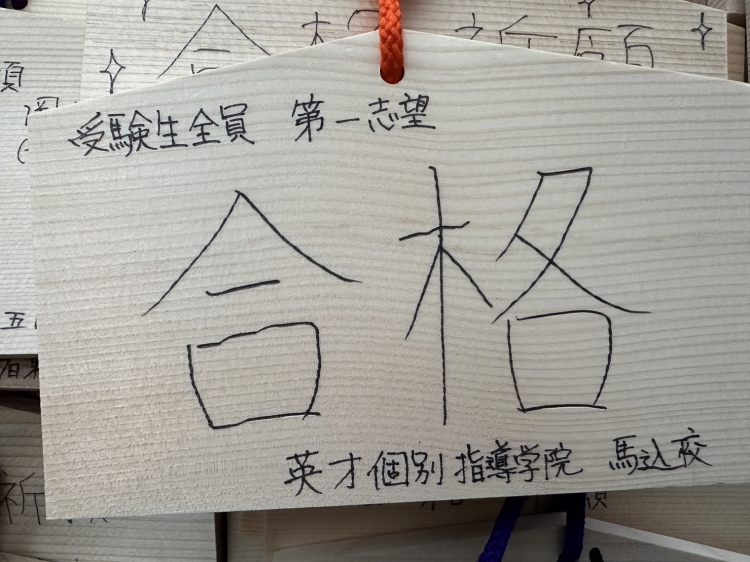 合格祈願
受験生全員 第一志望
合格
英才個別指導学院 馬込校